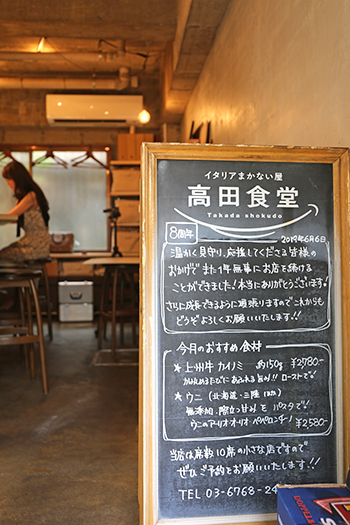 イタリアまかない屋
高田食堂
Takada shokudo
8周年
2019年6月6日
温かく見守り、応援してくださる皆様の
おかげで また1年無事にお店を続ける
ことができました！本当にありがとうございます。
さらに成長できるように頑張りますので これからも
どうぞよろしくお願いいたします！！
今月のおすすめ食材
★ 上州牛 カイノミ 約150g ¥2,980-
かみしめるたびに あふれる旨み!! ローストで!
★ ウニ (北海道・三陸
無添加 際立つ甘みを パスタで!
ウニのアーリオ・オーリオ・ペペロンチーノ ¥2,580-
当店は席数10席の小さな店ですので
ぜひご予約をお願いいたします!!
TEL 03-6768-24